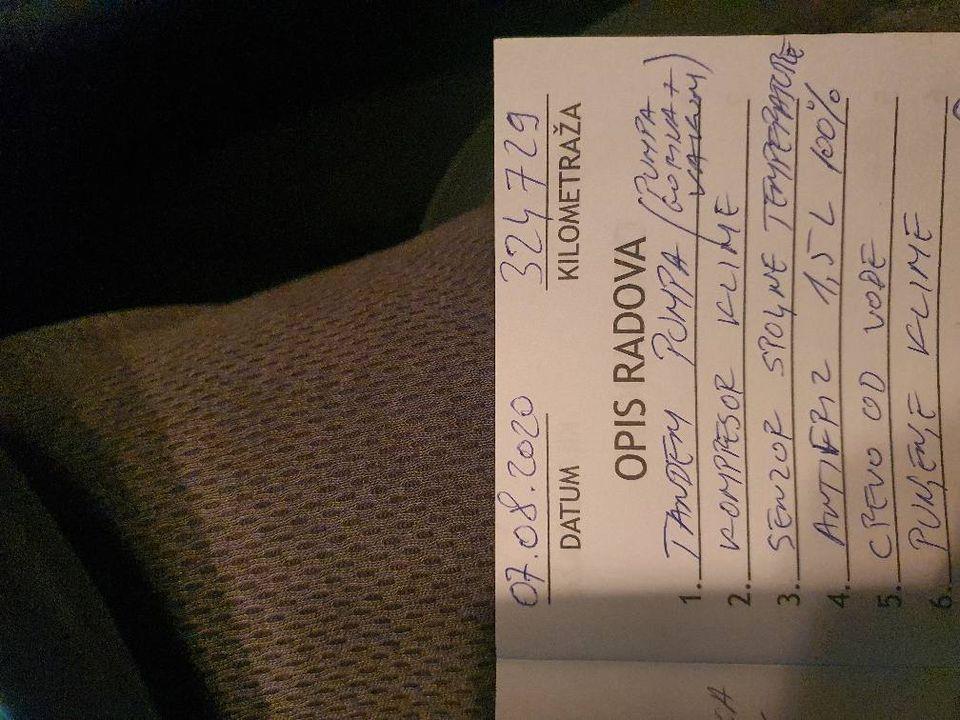 07.08.2020 324 729
DATUM KILOMETRAŽA
OPIS RADOVA
1. TANDEM PUMPA (PUMPA
GORIVA +
VAKUM)
2. KOMPRESOR KLIME
3. SENZOR SPOLJNE TEMPERATURE
4. ANTIFRIZ 1,5 L 100%
5. CREVO OD VODE
6. PUNJENJE KLIME